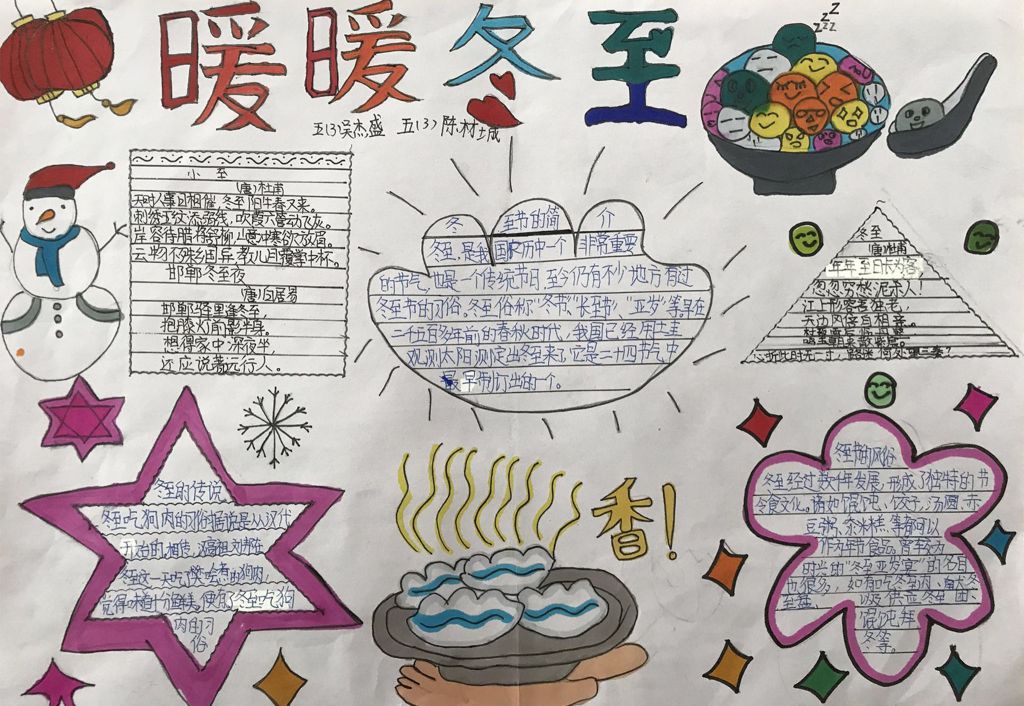 暖暖冬至
五(3)吴杰盛 五(3)陈材城
zzZZ
小至
(唐)杜甫
天时人事日相催,冬至阳生春又来。
刺绣五纹添弱线,吹葭六管动飞灰。
岸容待腊将舒柳,山意冲寒欲放眉。
云物不殊乡国异,教儿且覆掌中杯。
邯郸冬至夜
(唐)白居易
邯郸驿里逢冬至,
抱膝灯前影半身。
想得家中深夜坐,
还应说着远行人。
冬至节的简介
冬至,是我国历史中一个非常重要
的节气,也是一个传统节日,至今仍有不少地方有过
冬至节的习俗。冬至俗称"冬节"、"长至节"、"亚岁"等,早在
二千五百多年前的春秋时代,我国已经用土圭
观测太阳测定出冬至来了,它是二十四节气中
最早制订出的一个。
冬至
(唐)杜甫
年年至日长为客,
忽忽穷愁泥杀人!
江上形容吾独老,
天边风俗自相亲。
冬至的传说
冬至吃狗肉的习俗据说是从汉代
开始的。相传,汉高祖刘邦在
冬至这一天吃了樊哙煮的狗肉,
觉得味道十分鲜美,便有了冬至吃狗
肉的习
俗
香!
冬至节的风俗
冬至经过数千年发展,形成了独特的节
令食文化。诸如馄饨、饺子、汤圆、赤
豆粥、黍米糕等都可以
作为年节食品。曾较为
时尚的"冬至亚岁宴"的名目
也很多,如有吃冬至肉、
馄饨拜
冬等。